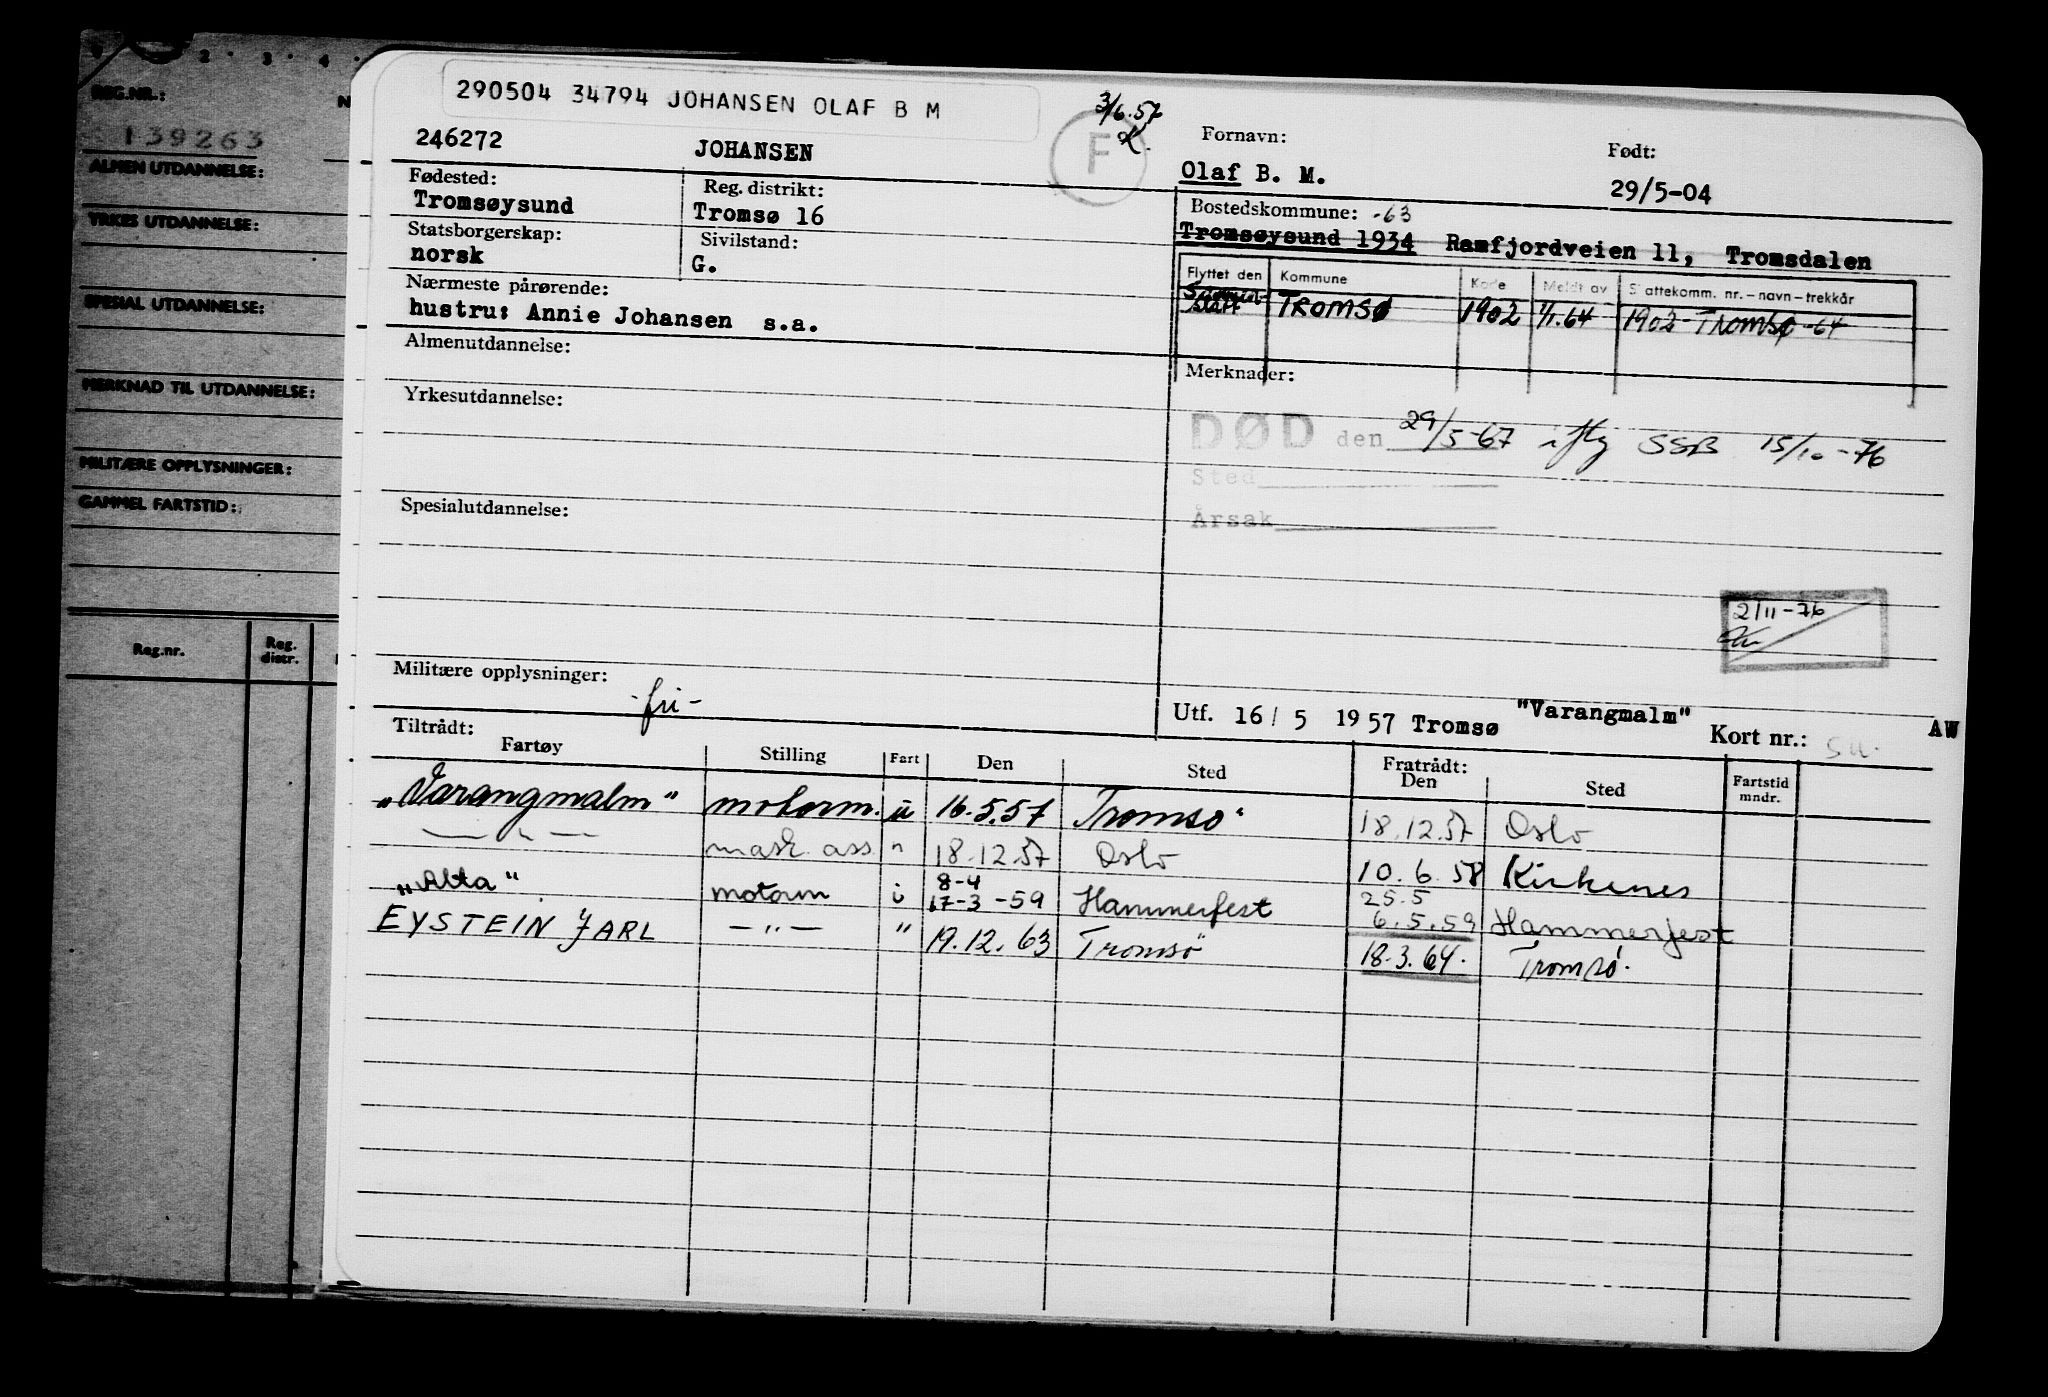 1 2 · 3 · 4 ·
REG.NR.: N
139263
ALMEN UTDANNELSE:
YRKES UTDANNELSE:
SPESIAL UTDANNELSE:
MERKNAD TIL UTDANNELSE:
MILITÆRE OPPLYSNINGER:
GAMMEL FARTSTID:
Reg.nr. Reg. distr.
290504 34794 JOHANSEN OLAF B M
3/6.57
F
246272 JOHANSEN
Fornavn: Født:
Olaf B. M. 29/5-04
Fødested: Reg. distrikt:
Tromsøysund Tromsø 16
Bostedskommune: -63
Tromsøysund 1934 Ramfjordveien 11, Tromsdalen
Statsborgerskap: Sivilstand:
norsk G.
Flyttet den Kommune Kode Meldt av Skattekomm. nr. – navn – trekkår
Tromsø 1902 1/1.64 1902 Tromsø -64
Nærmeste pårørende:
hustru: Annie Johansen s.a.
Almenutdannelse:
Merknader:
Yrkesutdannelse:
DØD den 29/5-67 iflg SSB 15/10-76
Sted
Årsak
Spesialutdannelse:
2/11-76
Militære opplysninger:
-fri-
Utf. 16/ 5 1957 Tromsø "Varangmalm" Kort nr.: AW
Tiltrådt: Fratrådt:
Fartøy Stilling Fart Den Sted Den Sted Fartstid mndr.
"Varangmalm" motorm. u 16.5.57 Tromsø 18.12.57 Oslo
— " — mask. ass " 18.12.57 Oslo 10.6.58 Kirkenes
8-4 25.5
"Alta" motorm i 17-3-59 Hammerfest 6.5.59 Hammerfest
EYSTEIN JARL — " — " 19.12.63 Tromsø 18.3.64. Tromsø.